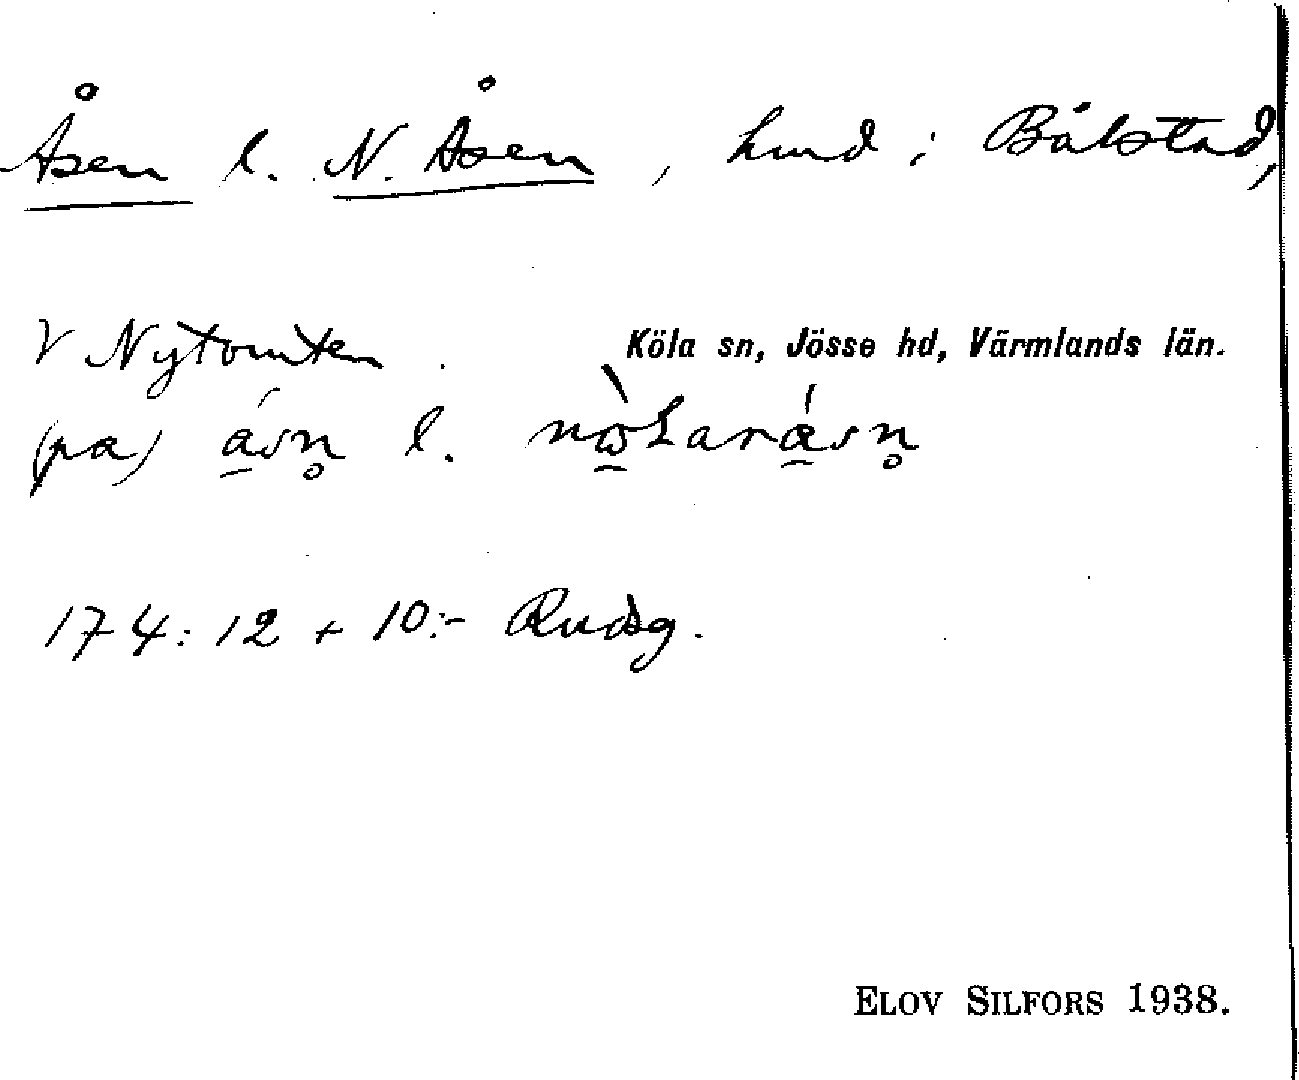 Åsen l. N. Åsen, hmd i Bålstad,
V Nytomten. Köla sn, Jösse hd, Värmlands län.
(pa) ásn̥ l.
174: 12 + 10:- Rudsg.
ELOV SILFORS 1938.